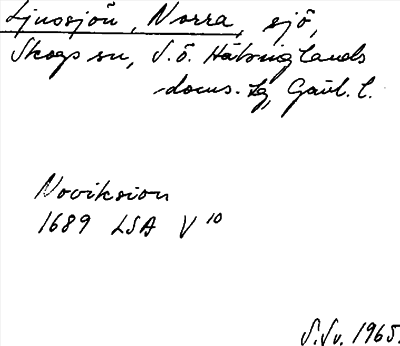 Ljussjön, Norra, sjö,
Skogs sn, S.ö. Hälsinglands
doms. tg, Gävl. l.
Noviksion
1689 LSA V 10
S.Sv. 1965.